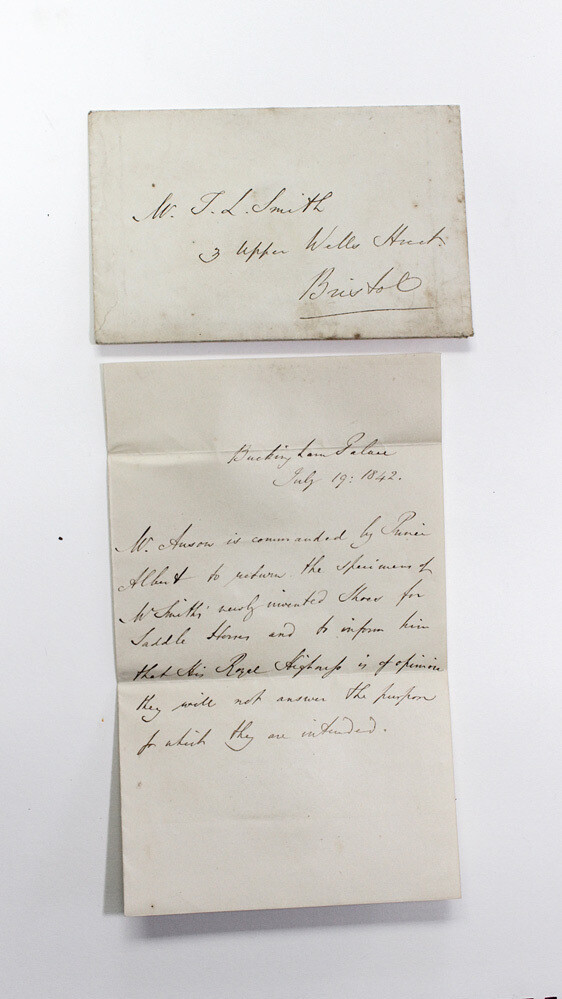 Mr. T. L. Smith
3 Upper Wells Street
Bristol
Buckingham Palace
July 19: 1842.
Mr. Anson is commanded by Prince
Albert to return the specimens of
Mr Smith's newly invented Shoes for
Saddle Horses and to inform him
that His Royal Highness is of opinion
they will not answer the purpose
for which they are intended.